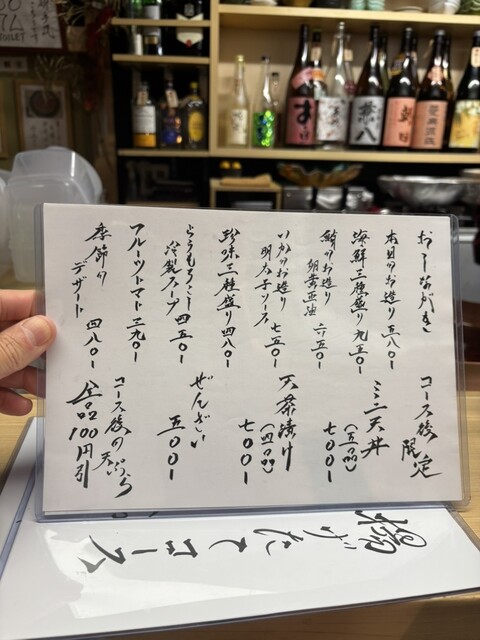 おしながき
本日のお造り 五八〇ー
海鮮三種盛り 九五〇ー
鯵のお造り
卵黄醤油 六五〇ー
いかのお造り
明太子ソース 七五〇ー
珍味三種盛り 四八〇ー
とうもろこし
冷製スープ 四五〇ー
フルーツトマト 三九〇ー
季節の
デザート 四八〇ー
コース後
限定
ミニ天丼
(五品)
七〇〇ー
天茶漬け
(四品)
七〇〇ー
ぜんざい
五〇〇ー
コース後の
天ぷら
全品100円引
揚げたてコース